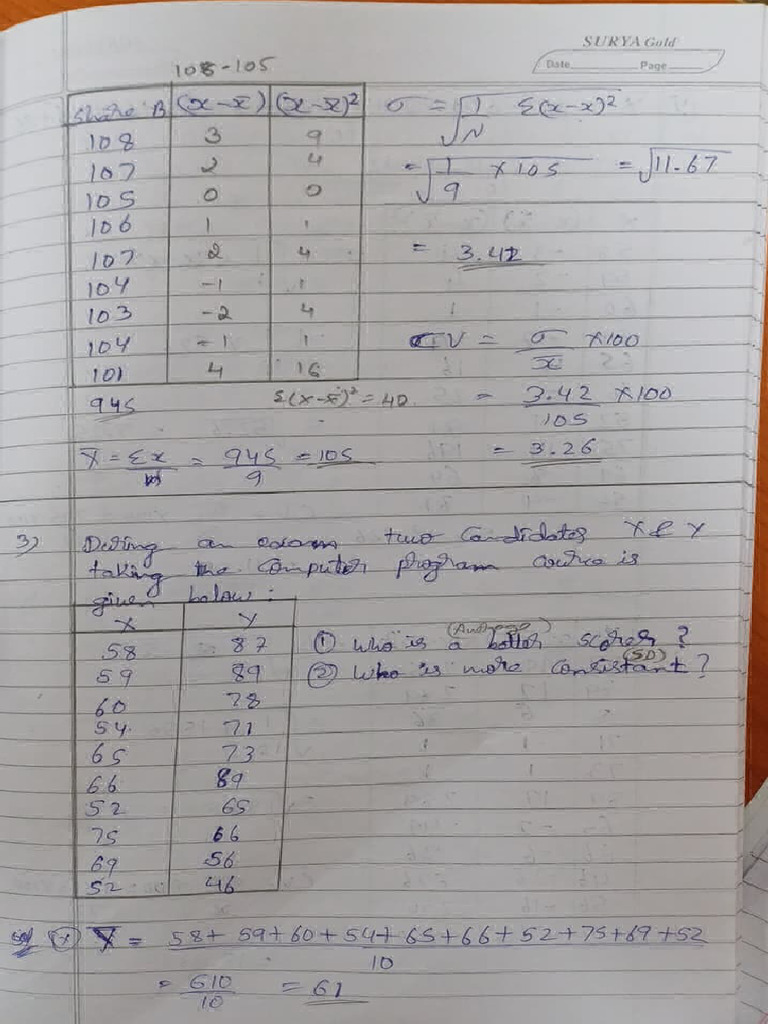 SURYA Gold
Date Page
108-105
Share B (x-x̄) (x-x̄)² σ = √1/N Σ(x-x)²
108 3 9
107 2 4 = √1/9 × 105 = √11.67
105 0 0
106 1 1
107 2 4 = 3.42
104 -1 1
103 -2 4
104 -1 1 CV = σ/x̄ ×100
101 4 16
945 Σ(x-x̄)² = 40 = 3.42/105 ×100
X̄ = Σx/N = 945/9 = 105 = 3.26
3) During an exam two candidates X & Y
taking the computer program course is
given below:
X Y
(Average)
58 87 ① Who is a better scorer?
(SD)
59 89 ② Who is more consistant?
60 78
54 71
65 73
66 89
52 65
75 66
69 56
52 46
Sol X̄ = 58+59+60+54+65+66+52+75+69+52/10
= 610/10 = 61